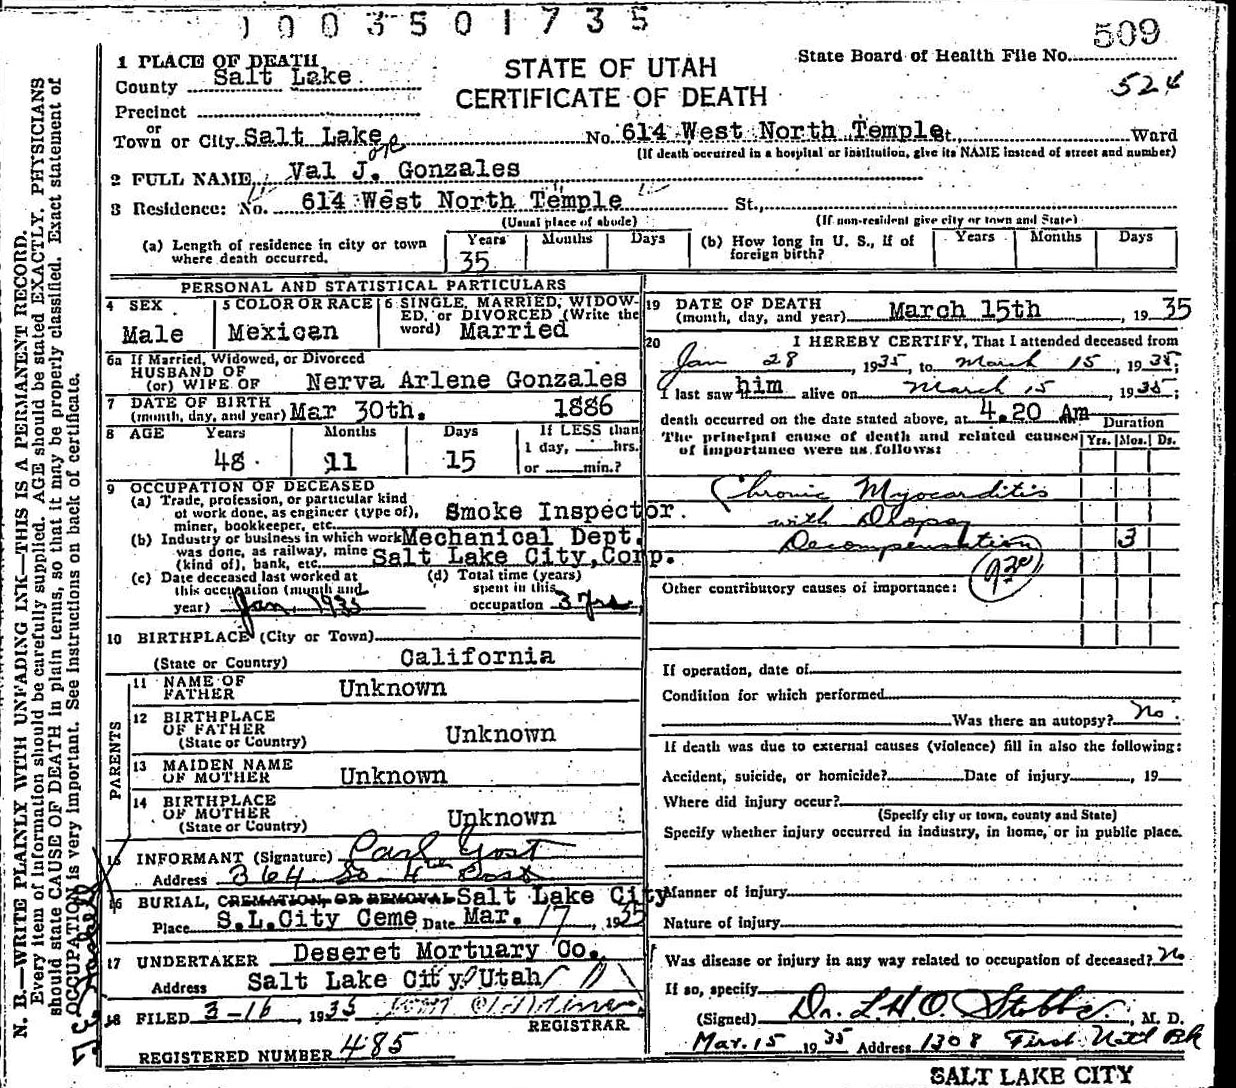 1003501735
509
State Board of Health File No.
524
STATE OF UTAH
CERTIFICATE OF DEATH
1 PLACE OF DEATH
County Salt Lake
Precinct
or
Town or City Salt Lake No. 614 West North Temple St., Ward
(If death occurred in a hospital or institution, give its NAME instead of street and number)
2 FULL NAME Val J. Gonzales
3 Residence: No. 614 West North Temple St.,
(Usual place of abode) (If non-resident give city or town and State)
(a) Length of residence in city or town where death occurred. Years 35 Months Days
(b) How long in U. S., if of foreign birth? Years Months Days
PERSONAL AND STATISTICAL PARTICULARS
4 SEX Male
5 COLOR OR RACE Mexican
6 SINGLE, MARRIED, WIDOWED, or DIVORCED (Write the word) Married
6a If Married, Widowed, or Divorced
HUSBAND OF
(or) WIFE OF Nerva Arlene Gonzales
7 DATE OF BIRTH
(month, day, and year) Mar 30th. 1886
8 AGE Years 48 Months 11 Days 15 If LESS than 1 day, hrs. or min.?
9 OCCUPATION OF DECEASED
(a) Trade, profession, or particular kind of work done, as engineer (type of), miner, bookkeeper, etc. Smoke Inspector.
(b) Industry or business in which work was done, as railway, mine (kind of), bank, etc. Mechanical Dept. Salt Lake City, Corp.
(c) Date deceased last worked at this occupation (month and year) Jan 1935
(d) Total time (years) spent in this occupation 3 yrs
10 BIRTHPLACE (City or Town)
(State or Country) California
PARENTS
11 NAME OF FATHER Unknown
12 BIRTHPLACE OF FATHER (State or Country) Unknown
13 MAIDEN NAME OF MOTHER Unknown
14 BIRTHPLACE OF MOTHER (State or Country) Unknown
15 INFORMANT (Signature) Carl Yost
Address 364 So 4th East
16 BURIAL, CREMATION, OR REMOVAL Salt Lake City
Place S.L.City Ceme Date Mar. 17, 1935
17 UNDERTAKER Deseret Mortuary Co.
Address Salt Lake City Utah
18 FILED 3-16, 1935
REGISTRAR
REGISTERED NUMBER 485
19 DATE OF DEATH
(month, day, and year) March 15th, 1935
20 I HEREBY CERTIFY, That I attended deceased from
Jan 28, 1935, to March 15, 1935;
I last saw him alive on March 15, 1935;
death occurred on the date stated above, at 4.20 Am
The principal cause of death and related causes of importance were as follows: Duration Yrs. Mos. Ds.
Chronic Myocarditis
with Dropsy
Decompensation 3
930
Other contributory causes of importance:
If operation, date of
Condition for which performed
Was there an autopsy? No.
If death was due to external causes (violence) fill in also the following:
Accident, suicide, or homicide? Date of injury, 19
Where did injury occur?
(Specify city or town, county and State)
Specify whether injury occurred in industry, in home, or in public place.
Manner of injury
Nature of injury
Was disease or injury in any way related to occupation of deceased? No
If so, specify
(Signed) Dr. L.H.O. Stobbe, M. D.
Mar. 15 1935 Address 1308 First Natl Bk
SALT LAKE CITY
N. B.—WRITE PLAINLY WITH UNFADING INK—THIS IS A PERMANENT RECORD.
Every item of information should be carefully supplied. AGE should be stated EXACTLY. PHYSICIANS
should state CAUSE OF DEATH in plain terms, so that it may be properly classified. Exact statement of
OCCUPATION is very important. See instructions on back of certificate.